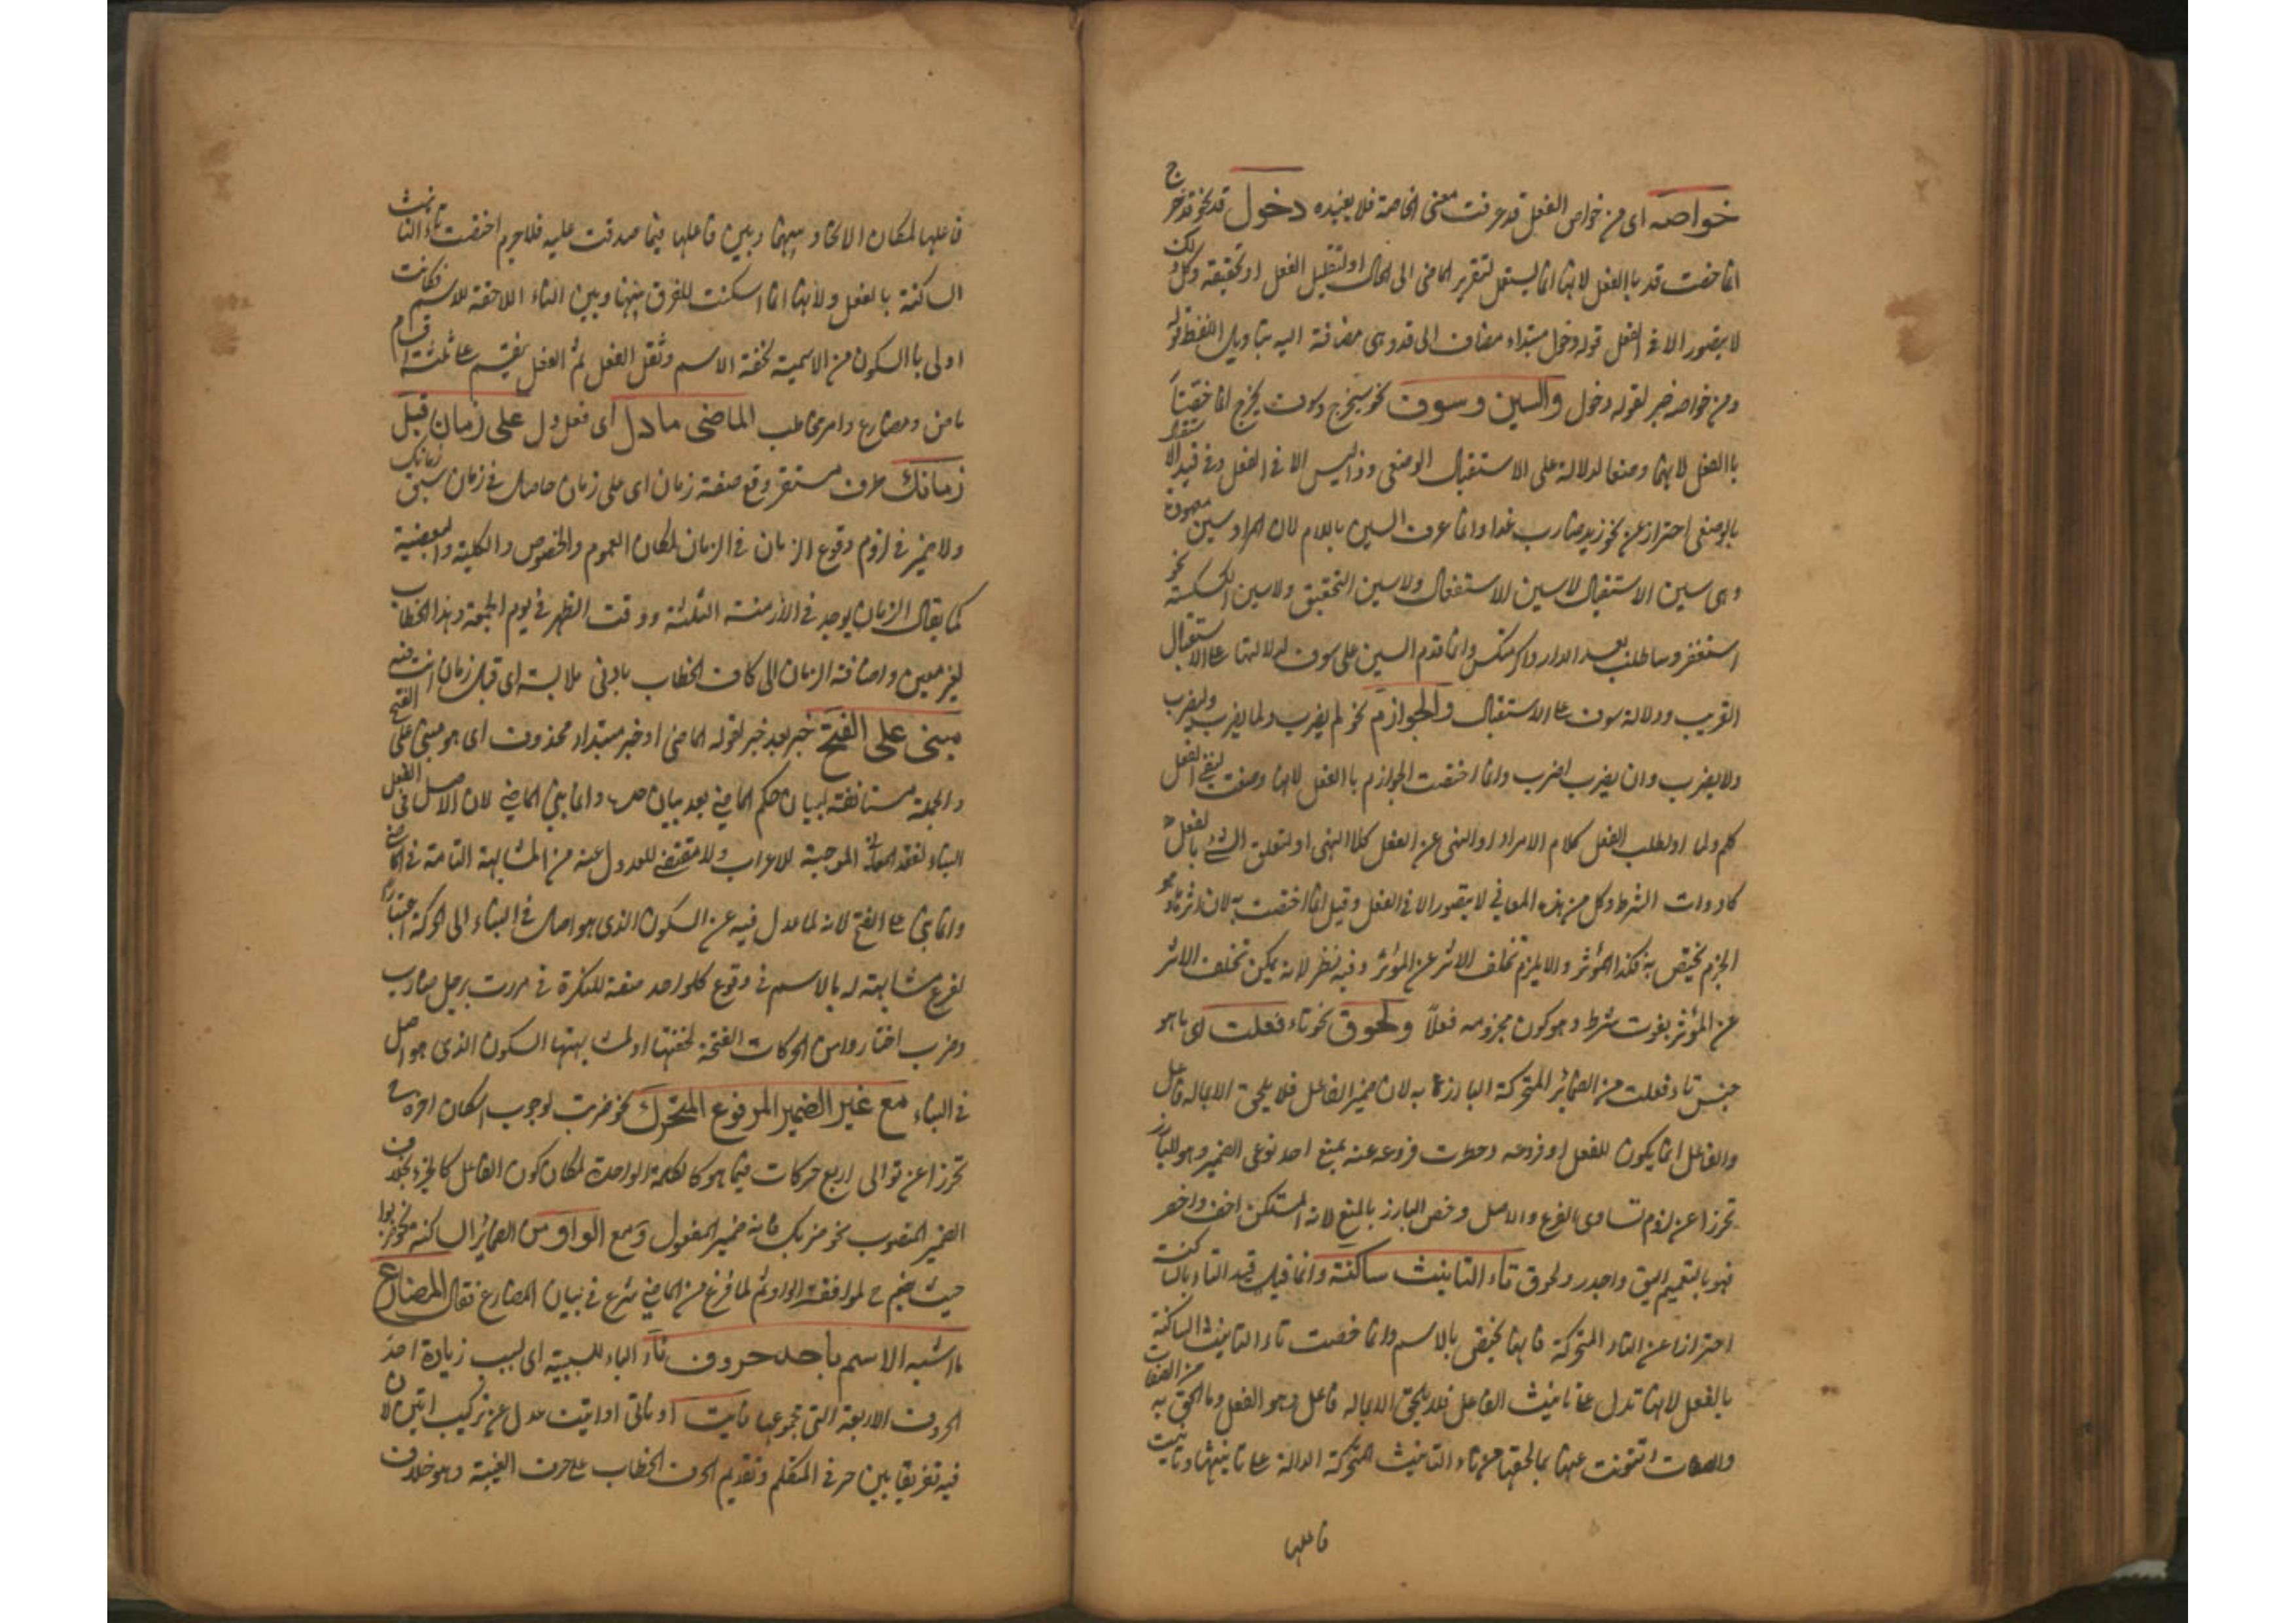 خواصه اى من خواص الفعل قد عرفت معنى الخاصة فلا يفيده دخول قد نحو قد خرج
انما خصت قد باالفعل لانها انما يستعمل لتقريب الماضى الى الحال او لتقليل الفعل او تحقيقه وكل ذلك
لا يتصور الا فى الفعل قوله دخول مبتداء مضاف الى قد وهى مضافة اليه بتاويل اللفظ قوله
ومن خواصه خبر لقوله دخول والسين وسوف نحو سيخرج وسوف يخرج انما خصتا
باالفعل لانهما وضعا لدلالة على الاستقبال الوضعى وذا ليس الا فى الفعل وفى قيد الاستقبال
بالوضعى احتراز عن نحو زيد ضارب غدا وانما عرف السين باللام لان المراد سين معهودة
وهى سين الاستقبال لا سين الاستفعال ولا سين التحقيق ولا سين الكسكسة نحو
استغفر وساطلب بعد الدار واكرمتكس وانما قدم السين على سوف لدلالتها على الاستقبال
القريب ودلالة سوف على الاستقبال والجوازم نحو لم يضرب ولما يضرب وليضرب
ولا يضرب وان يضرب اضرب وانما اختصت الجوازم باالفعل لانها وضعت لنفى الفعل
كلم ولما او لطلب الفعل كلام الامر او النهى عن الفعل كلا النهى او لتعلق الشئ بالفعل
كادوات الشرط وكل من هذه المعانى لا يتصور الا فى الفعل وقيل انما اختصت به لان اثرها وهو
الجزم يختص به فكذا المؤثر والا يلزم تخلف الاثر عن المؤثر وفيه نظر لانه يمكن تخلف الاثر
عن المؤثر بفوت شرط وهو كون مجزومه فعلاً ولحوق نحو تاء فعلت اى ما هو
جنس تاء فعلت من الضمائر المتحركة البارزة به لان ضمير الفاعل فلا يلحق الا بماله فاعل
والفاعل انما يكون للفعل او فروعه وحطرت فروعه عنه بمنع احد نوعى الضمير وهو البارز
تحرزا عن لزوم تساوى الفرع والاصل وخص البارز بالمنع لانه المستكن اخف واخصر
فهو بالتعميم اليق واجدر ولحوق تاء التانيث ساكنة وانما قيد التاء بالساكنة
احترازا عن التاء المتحركة فانها تختص بالاسم وانما خصت تاء التانيث الساكنة
بالفعل لانها تدل على تانيث الفاعل فلا يلحق الا بماله فاعل وهو الفعل وما الحق به من الصفات
والصفات استغنت عنها بما لحقها من تاء التانيث المتحركة الدالة على تانيثها وتانيث
فاعلها
فاعلها لمكان الاتحاد بينها وبين فاعلها فيما صدقت عليه فلا جرم اختصت تاء التانيث
الساكنة بالفعل ولانها انما اسكنت للفرق بينها وبين التاء اللاحقة للاسم فكانت
اولى باالسكون من الاسمية لخفة الاسم وثقل الفعل ثم الفعل ينقسم على ثلثة اقسام
ماض ومضارع وامر مخاطب الماضى ما دل اى فعل دل على زمان قبل
زمانك ظرف مستقر وقع صفة زمان اى على زمان حاصل فى زمان سبق زمانك
ولا ضير فى لزوم وقوع الزمان فى الزمان لمكان العموم والخصوص والكلية والبعضية
كما يقال الزمان يوجد فى الازمنة الثلثة ووقت الظهر فى يوم الجمعة وهذا الخطاب
لغير معين واضافة الزمان الى كاف الخطاب بادنى ملابسة اى قبل زمان انت فيه
مبنى على الفتح خبر بعد خبر لقوله الماضى او خبر مبتداء محذوف اى هو مبنى على الفتح
والجملة مستانفة لبيان حكم الماضى بعد بيان حده وانما بنى الماضى لان الاصل فى الفعل
البناء لفقد المعانى الموجبة للاعراب ولا مقتضى للعدول عنه من المشابهة التامة فى الماضى
وانما بنى على الفتح لانه لما عدل فيه عن السكون الذى هو اصل فى البناء الى الحركة اعتبارا
لفرع مشابهته له بالاسم فى وقوع كل واحد صفة للنكرة فى مررت برجل ضارب
وضرب اختاروا من الحركات الفتحة لخفتها او لمشابهتها السكون الذى هو اصل
فى البناء مع غير الضمير المرفوع المتحرك نحو ضربت لوجوب اسكان اخره ح
تحرزا عن توالى اربع حركات فيما هو كالكلمة الواحدة لمكان كون الفاعل كالجزء بخلاف
الضمير المنصوب نحو ضربك فانه ضمير المفعول ومع الواو من الضمائر الساكنة نحو ضربوا
حيث يضم ح لموافقة الواو ثم لما فرغ من الماضى شرع فى بيان المضارع فقال المضارع
ما اشبه الاسم باحد حروف نأ الباء للسببية اى لسبب زيادة احد
الحروف الاربعة التى مجموعها نايت او ناتى او اتين عدل عن تركيب اتين لان
فيه تفريقا بين حرفى المتكلم وتقديم الحرف الخطاب على حرف الغيبة وهو خلاف